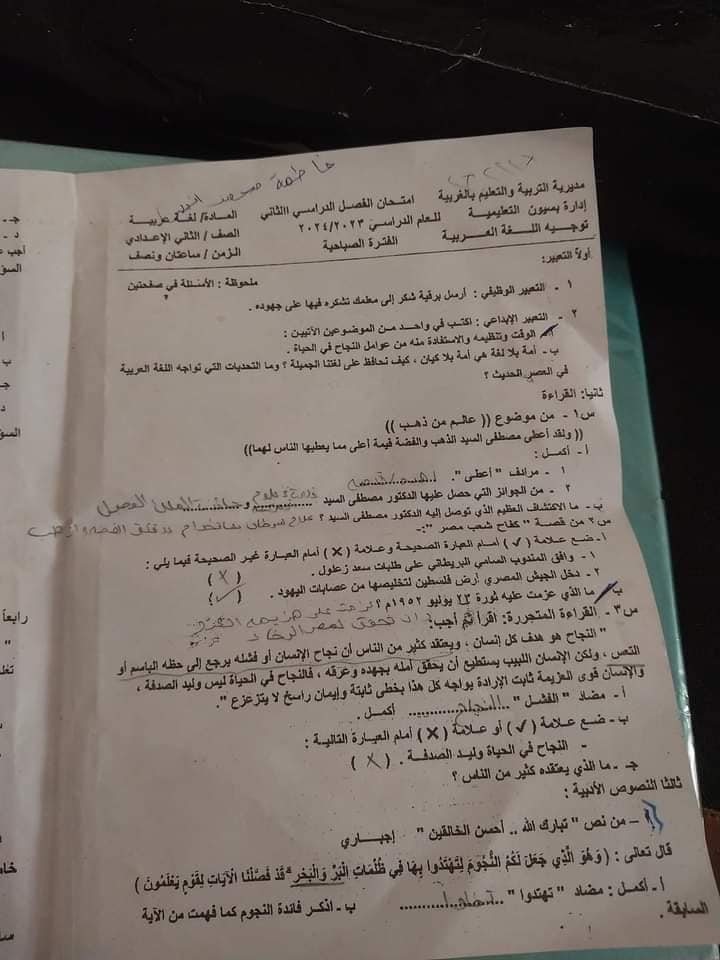 فاطمة
مديرية التربية والتعليم بالغربية امتحان الفصل الدراسي االثاني المادة/ لغة عربية
إدارة بسيون التعليمية للعام الدراسي ٢٠٢٤/٢٠٢٣ الصف / الثاني الإعدادي
توجيه اللغة العربية الفترة الصباحية الزمن / ساعتان ونصف
أولاً التعبير: ملحوظة : الأسئلة في صفحتين
١ - التعبير الوظيفي : أرسل برقية شكر إلى معلمك تشكره فيها على جهوده .
٢ - التعبير الإبداعي : اكتب في واحد من الموضوعين الآتيين :
أ- الوقت وتنظيمه والاستفادة منه من عوامل النجاح في الحياة .
ب - أمة بلا لغة هي أمة بلا كيان ، كيف نحافظ على لغتنا الجميلة ؟ وما التحديات التي تواجه اللغة العربية
في العصر الحديث ؟
ثانيا: القراءة
س١ - من موضوع (( عالم من ذهب ))
(( ولقد أعطى مصطفى السيد الذهب والفضة قيمة أعلى مما يعطيها الناس لهما))
أ - أكمل :
١ - مرادف " أعطى ".
٢ - من الجوائز التي حصل عليها الدكتور مصطفى السيد و
ب- ما الاكتشاف العظيم الذي توصل إليه الدكتور مصطفى السيد ؟ علاج
س٢ من قصة " كفاح شعب مصر ":-
أ- ضع علامة (✓) أمام العبارة الصحيحة وعلامة (×) أمام العبارة غير الصحيحة فيما يلي :
١ - وافق المندوب السامي البريطاني على طلبات سعد زغلول . ( × )
٢ - دخل الجيش المصري أرض فلسطين لتخليصها من عصابات اليهود . ( ✓ )
ب- ما الذي عزمت عليه ثورة ٢٣ يوليو ١٩٥٢م ؟ عزمت على
س٣ - القراءة المتحررة: اقرأ ثم أجب:
" النجاح هو هدف كل إنسان ، ويعتقد كثير من الناس أن نجاح الإنسان أو فشله يرجع إلى حظه الباسم أو
التعس ، ولكن الإنسان اللبيب يستطيع أن يحقق أمله بجهده وعرقه ، فالنجاح في الحياة ليس وليد الصدفة ،
والإنسان قوى العزيمة ثابت الإرادة يواجه كل هذا بخطى ثابتة وإيمان راسخ لا يتزعزع ".
أ - مضاد " الفشل " ..النجاح............ أكمل .
ب - ضع علامة (✓) أو علامة (×) أمام العبارة التالية :
- النجاح في الحياة وليد الصدفة . ( × )
جـ - ما الذي يعتقده كثير من الناس ؟
ثالثا النصوص الأدبية :
١ – من نص " تبارك الله .. أحسن الخالقين " إجباري
قال تعالى : ( وَهُوَ الَّذِي جَعَلَ لَكُمُ النُّجُومَ لِتَهْتَدُوا بِهَا فِي ظُلُمَاتِ الْبَرِّ وَالْبَحْرِ قَدْ فَصَّلْنَا الْآيَاتِ لِقَوْمٍ يَعْلَمُونَ )
أ - أكمل : مضاد " تهتدوا " ............ ب - اذكر فائدة النجوم كما فهمت من الآية
السابقة .